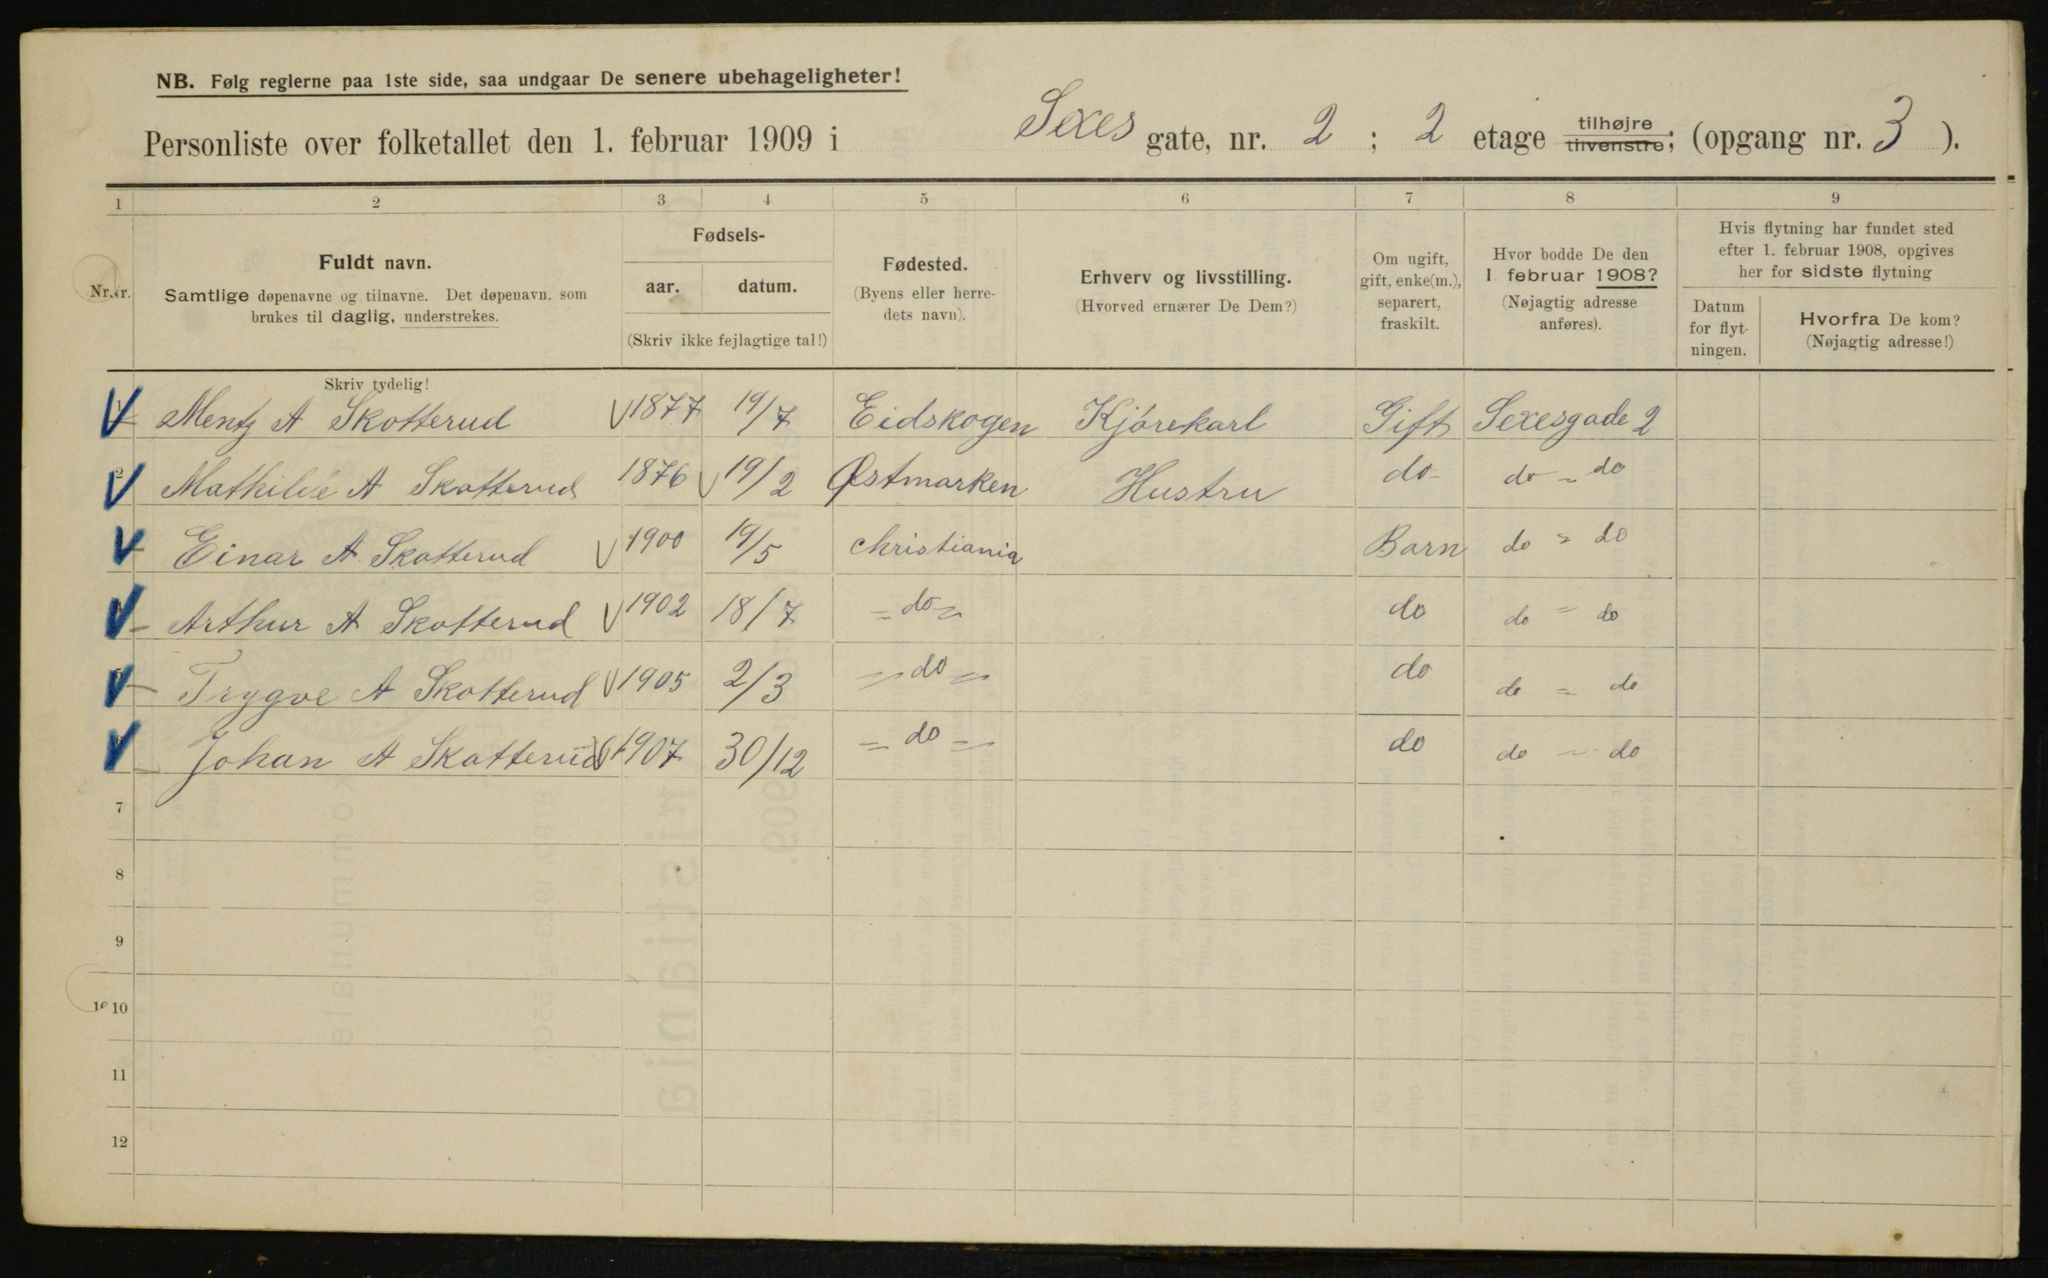 NB. Følg reglerne paa 1ste side, saa undgaar De senere ubehageligheter!
Personliste over folketallet den 1. februar 1909 i Sexes gate, nr. 2 ; 2 etage tilhøjre tilvenstre; (opgang nr. 3 ).
1 2 3 4 5 6 7 8 9
Nr. Fuldt navn. Samtlige døpenavne og tilnavne. Det døpenavn, som
brukes til daglig, understrekes.
Fødsels-
aar. datum.
(Skriv ikke fejlagtige tal!)
Fødested.
(Byens eller herre-
dets navn).
Erhverv og livsstilling.
(Hvorved ernærer De Dem?)
Om ugift,
gift, enke(m.),
separert,
fraskilt.
Hvor bodde De den
1. februar 1908?
(Nøjagtig adresse
anføres).
Hvis flytning har fundet sted
efter 1. februar 1908, opgives
her for sidste flytning
Datum
for flyt-
ningen.
Hvorfra De kom?
(Nøjagtig adresse!)
Skriv tydelig!
1 Mentz A Skotterud 1877 19/7 Eidskogen Kjørekarl Gift Sexesgade 2
2 Mathilde A Skotterud 1876 19/2 Østmarken Hustru do do - do
Einar A Skotterud 1900 19/5 Christiania Barn do = do
Arthur A Skotterud 1902 18/7 = do = do do = do
5 Trygve A Skotterud 1905 2/3 = do = do do = do
Johan A Skotterud 1907 30/12 = do = do do - do
7
8
9
10
11
12